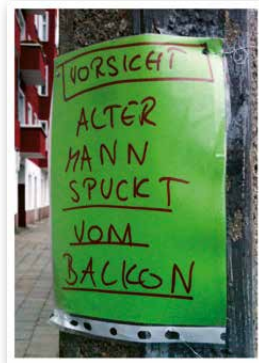 VORSICHT
ALTER
MANN
SPUCKT
VOM
BALKON